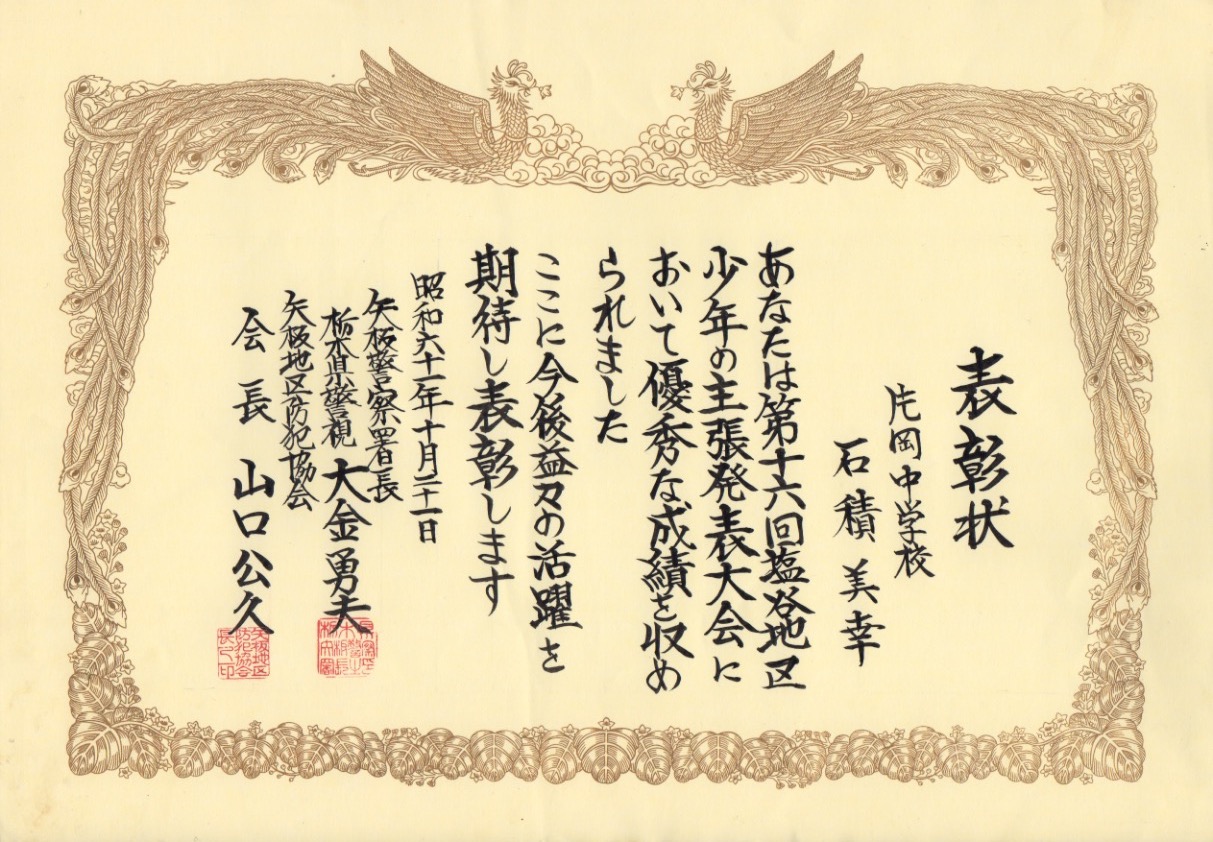 表彰状
片岡中学校
石積美幸
あなたは第十六回塩谷地区
少年の主張発表大会に
おいて優秀な成績を収め
られました
ここに今後益々の活躍を
期待し表彰します
昭和六十一年十月二十一日
矢板警察署長
栃木県警視 大金勇夫
矢板地区防犯協会
会長 山口公久
矢板地区
防犯協会
長之印